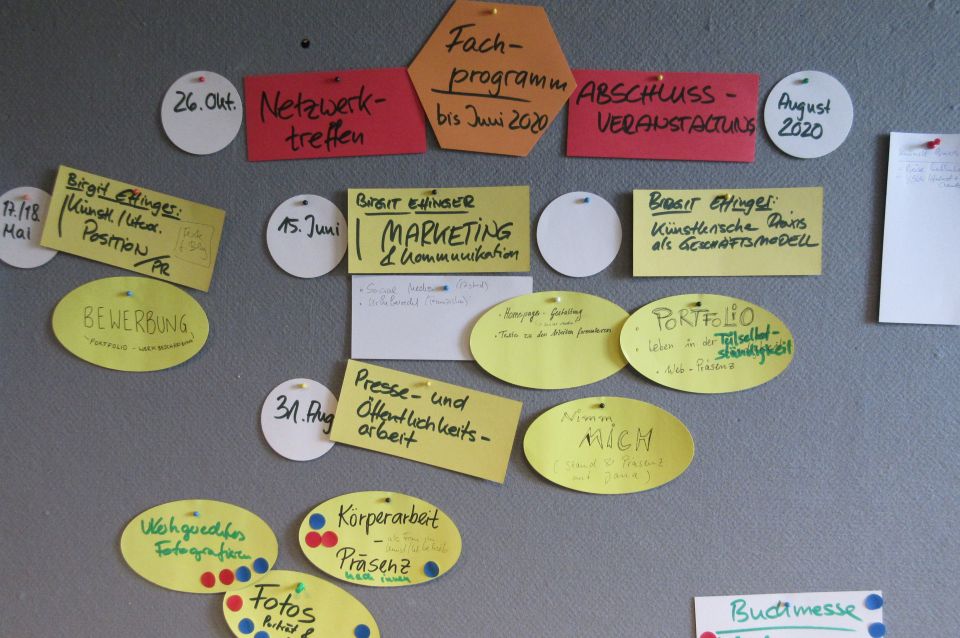 Fach-
programm
bis Juni 2020
26. Okt.
Netzwerk-
treffen
ABSCHLUSS-
VERANSTALTUNG
August
2020
17./18.
Mai
Birgit Effinger:
Künstl./literar.
POSITION
/PR
15. Juni
BIRGIT EFFINGER
MARKETING
& Kommunikation
BIRGIT Effinger:
Künstlerische Praxis
als GESCHÄFTSMODELL
BEWERBUNG
- PORTFOLIO - WERKBESCHREIBUNG
• Social Media
• Urheberrecht
• Homepage-Gestaltung
• Texte zu den Arbeiten formulieren
PORTFOLIO
• Leben in der Teilselbst-
ständigkeit
• Web-Präsenz
31. Aug
Presse- und
Öffentlichkeits-
arbeit
Nimm
MICH
(Stand & Präsenz
mit Jana)
Werkgerechtes
Fotografieren
Körperarbeit
-
Präsenz
nach innen
Fotos
Porträt &
Buchmesse